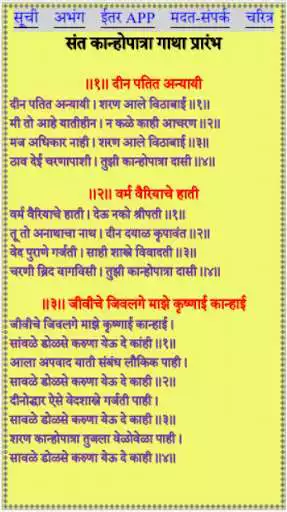 सूची अभंग ईतर APP मदत-संपर्क चरित्र
संत कान्होपात्रा गाथा प्रारंभ
॥१॥ दीन पतित अन्यायी
दीन पतित अन्यायी । शरण आले विठाबाई ॥१॥
मी तो आहे यातीहीन । न कळे काही आचरण ॥२॥
मज अधिकार नाही । शरण आले विठाबाई ॥३॥
ठाव देईं चरणापाशी । तुझी कान्होपात्रा दासी ॥४॥
॥२॥ वर्म वैरियाचे हाती
वर्म वैरियाचे हाती । देऊ नको श्रीपती ॥१॥
तू तो अनाथाचा नाथ । दीन दयाळ कृपावंत ॥२॥
वेद पुराणे गर्जती । साही शास्त्रे विवादती ॥३॥
चरणी ब्रिद वागविसी । तुझी कान्होपात्रा दासी ॥४॥
॥३॥ जीवीचे जिवलगे माझे कृष्णाई कान्हाई
जीवीचे जिवलगे माझे कृष्णाई कान्हाई ।
सांवळे डोळसे करुणा येऊ दे कांही ॥१॥
आला अपवाद याती संबंध लौकिक पाही ।
सावळे डोळसे करुणा येऊ दे काही ॥२॥
दीनोद्धार ऐसे वेदशास्त्रे गर्जती पाही ।
सावळे डोळसे करुणा येऊ दे काही ॥३॥
शरण कान्होपात्रा तुजला वेळोवेळा पाही ।
सावळे डोळसे करुणा येऊ दे काही ॥४॥